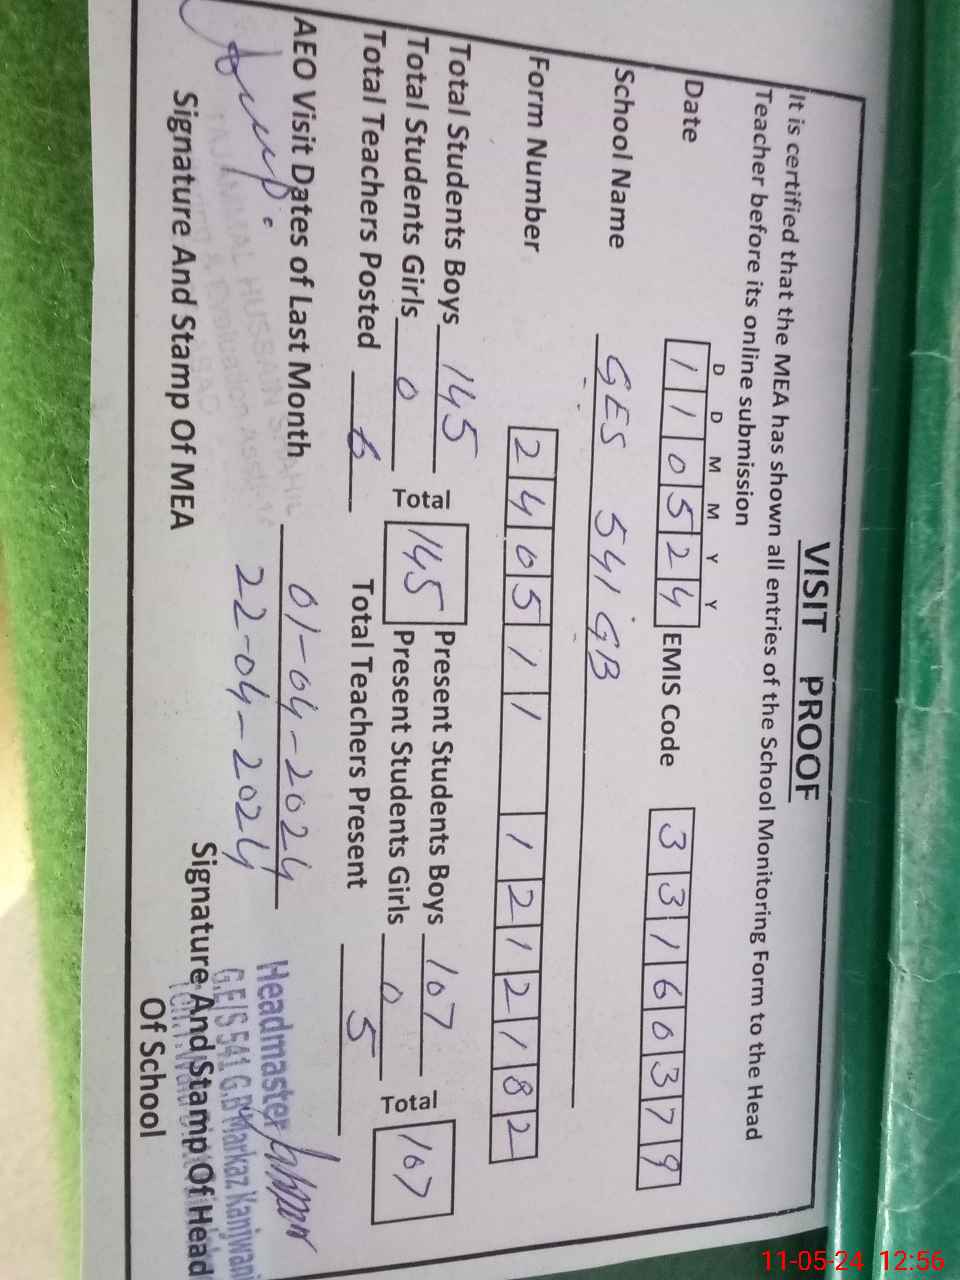 VISIT PROOF
It is certified that the MEA has shown all entries of the School Monitoring Form to the Head
Teacher before its online submission
D D M M Y Y
Date 110524 EMIS Code 33160379
School Name GES 541 GB
Form Number 240511 1212182
Total Students Boys 145 Present Students Boys 107
Total 145 Total 107
Total Students Girls 0 Present Students Girls 0
Total Teachers Posted 6 Total Teachers Present 5
AEO Visit Dates of Last Month 01-04-2024
22-04-2024
Headmaster
G.E/S 541 G.B Markaz Kanjwani
Signature And Stamp Of MEA Signature And Stamp Of Head
Of School
11-05-24 12:56